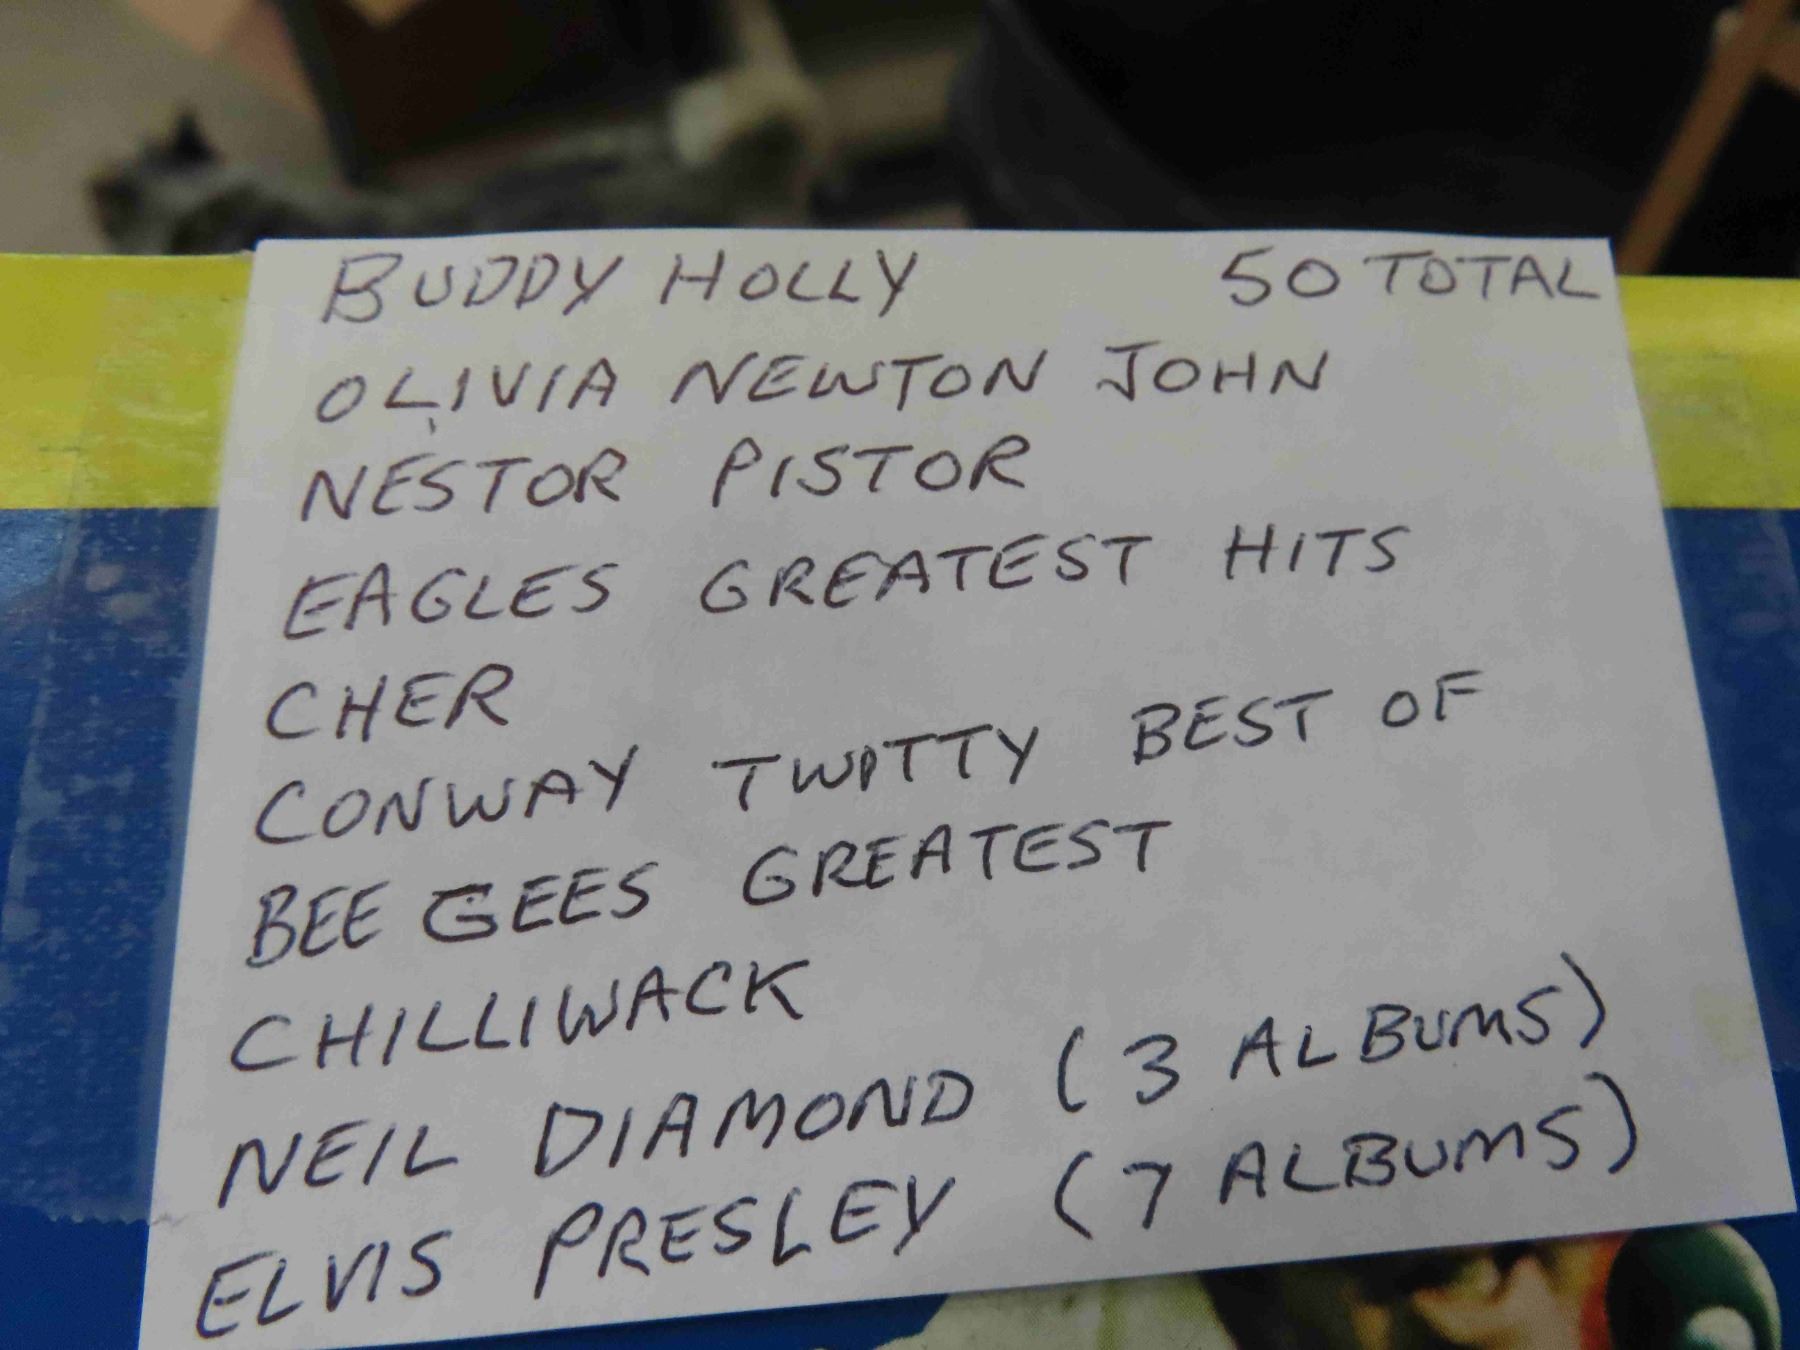 BUDDY HOLLY 50 TOTAL
OLIVIA NEWTON JOHN
NESTOR PISTOR
EAGLES GREATEST HITS
CHER
CONWAY TWITTY BEST OF
BEE GEES GREATEST
CHILLIWACK
NEIL DIAMOND (3 ALBUMS)
ELVIS PRESLEY (7 ALBUMS)